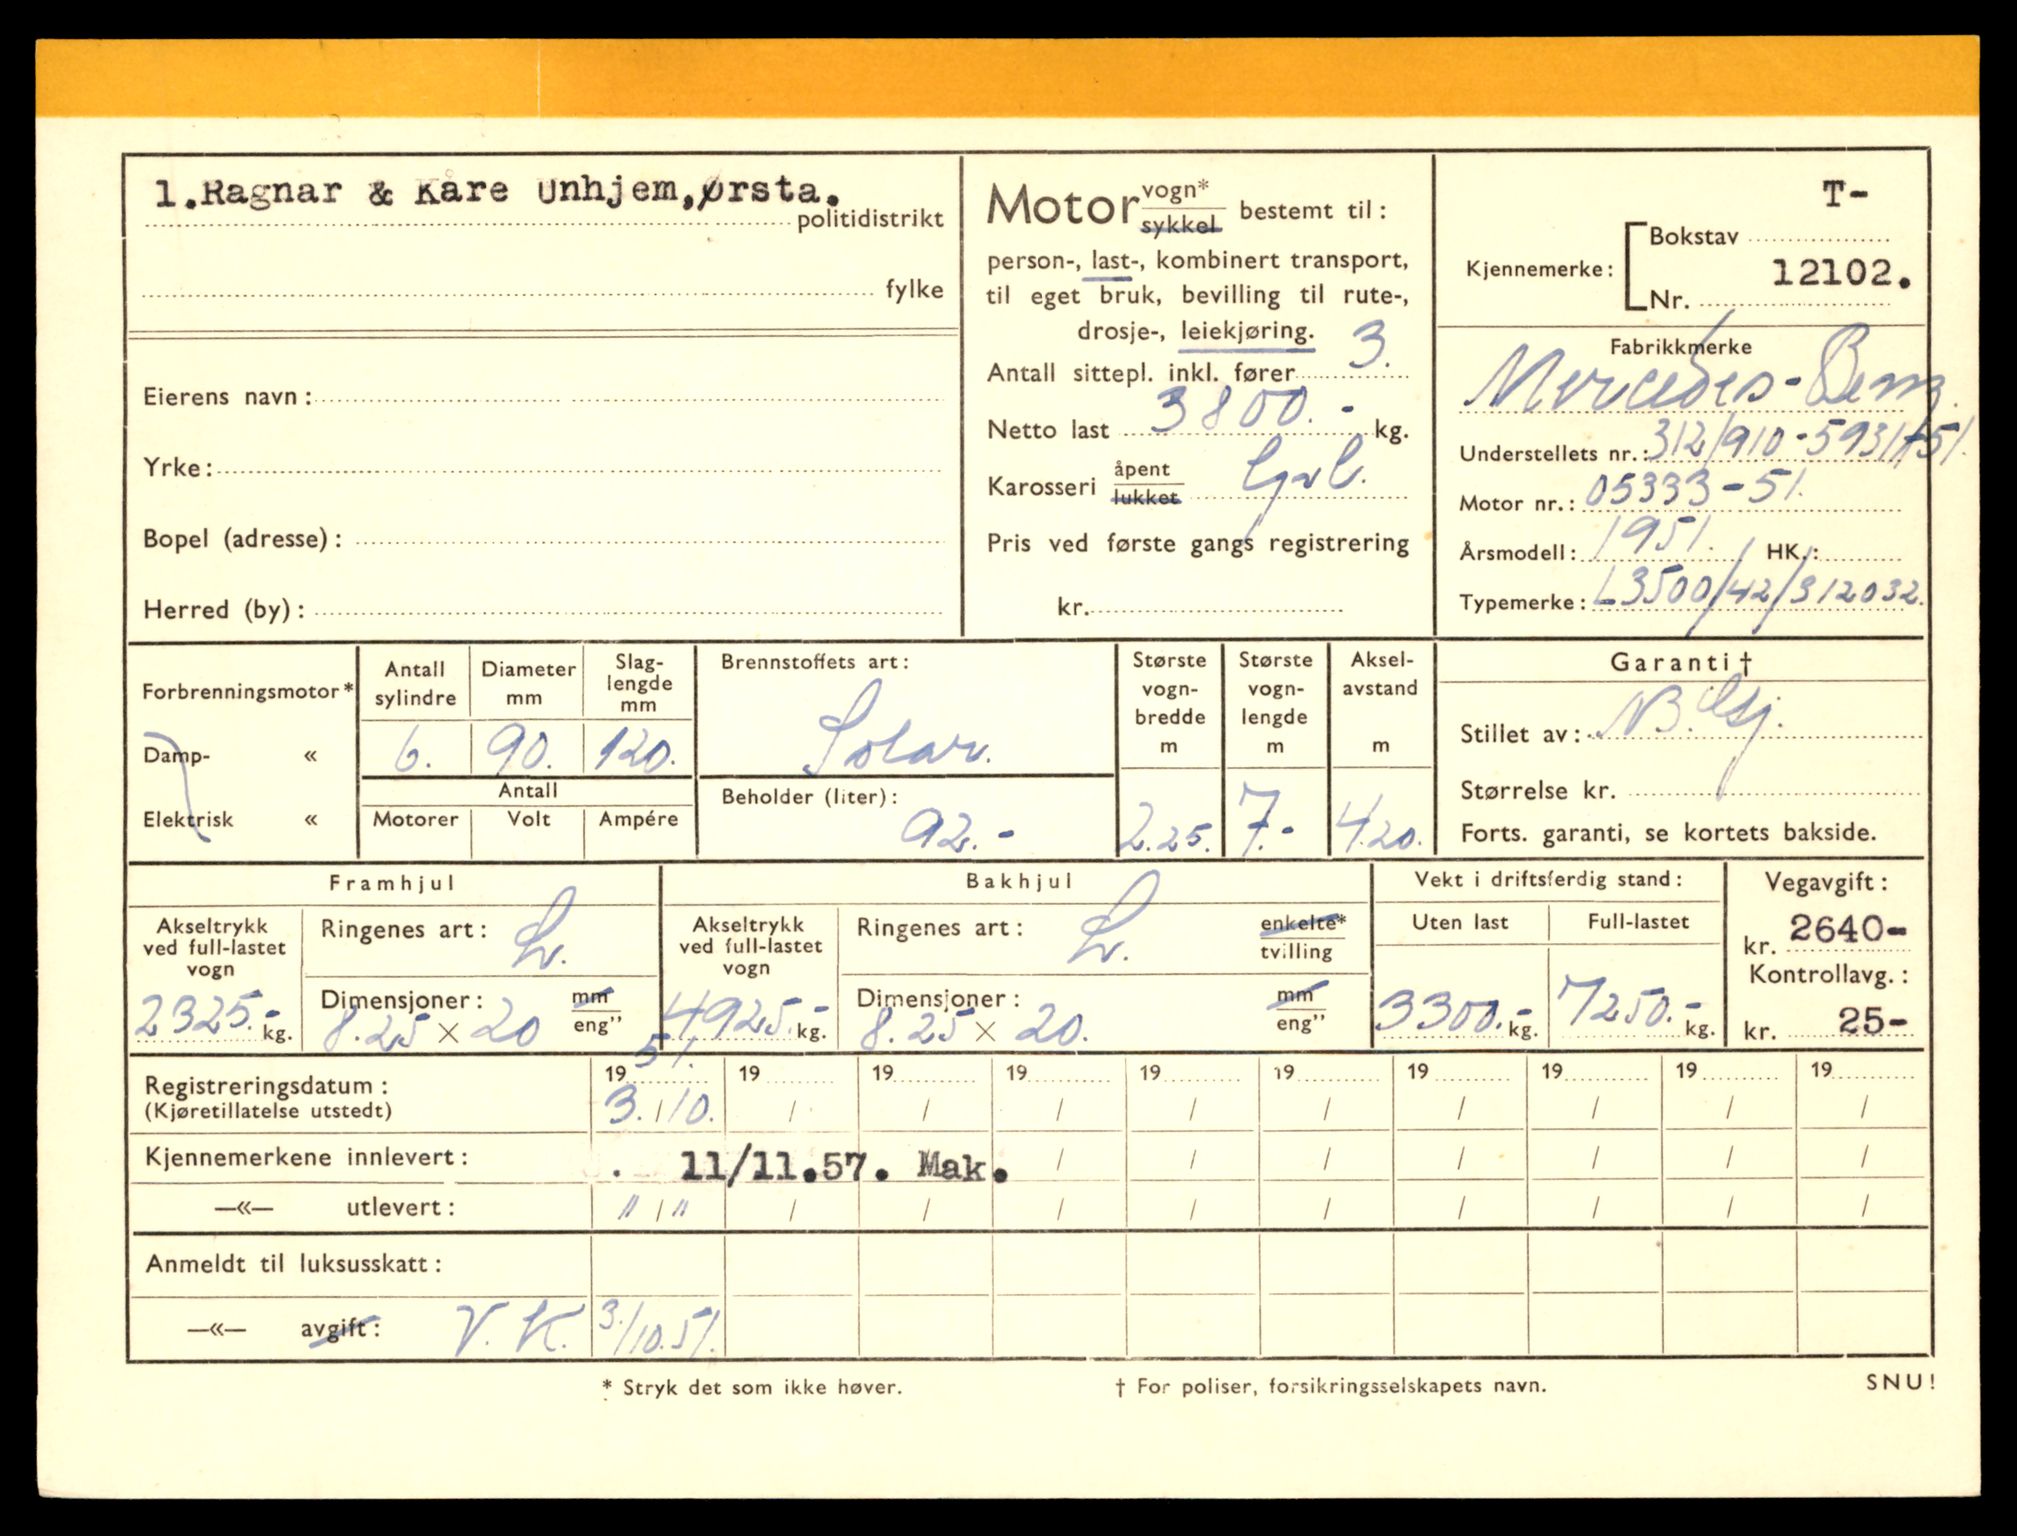 1.Ragnar & Kåre Unhjem,Ørsta.
politidistrikt
fylke
Eierens navn:
Yrke:
Bopel (adresse):
Herred (by):
Motor vogn* sykkel bestemt til:
person-, last-, kombinert transport,
til eget bruk, bevilling til rute-,
drosje-, leiekjøring.
Antall sittepl. inkl. fører 3.
Netto last 3800.- kg.
Karosseri åpent lukket
Pris ved første gangs registrering
kr.
T-
Bokstav
Kjennemerke:
12102.
Nr.
Fabrikkmerke
Mercedes-Benz.
Understellets nr.: 312/910-5931/51.
Motor nr.: 05333-51.
Årsmodell: 1951. HK.:
Typemerke: L3500/42/312032.
Forbrenningsmotor*
Damp- «
Elektrisk «
Antall sylindre
6.
Diameter mm
90.
Slag-lengde mm
120.
Antall
Motorer Volt Ampére
Brennstoffets art:
Solar.
Beholder (liter):
92.-
Største vogn-bredde m
2.25.
Største vogn-lengde m
7.-
Aksel-avstand m
4.20.
Garanti†
Stillet av:
Størrelse kr.
Forts. garanti, se kortets bakside.
Framhjul
Akseltrykk ved full-lastet vogn
2325.- kg.
Ringenes art: L.
Dimensjoner: mm eng”
8.25 × 20
Bakhjul
Akseltrykk ved full-lastet vogn
4925.- kg.
Ringenes art: L. enkelte* tvilling
Dimensjoner: mm eng”
8.25 × 20.
Vekt i driftsferdig stand:
Uten last Full-lastet
3300.- kg. 7250.- kg.
Vegavgift:
kr. 2640-
Kontrollavg.:
kr. 25-
Registreringsdatum: 19 51. 19 19 19 19 19 19 19 19 19
(Kjøretillatelse utstedt) 3./10. / / / / / / / / /
Kjennemerkene innlevert: . 11/11.57. Mak. / / / / / / /
—«— utlevert: " / " / / / / / / / / /
Anmeldt til luksusskatt:
—«— avgift: V.K. 3./10.51.
* Stryk det som ikke høver.
† For poliser, forsikringsselskapets navn.
SNU!